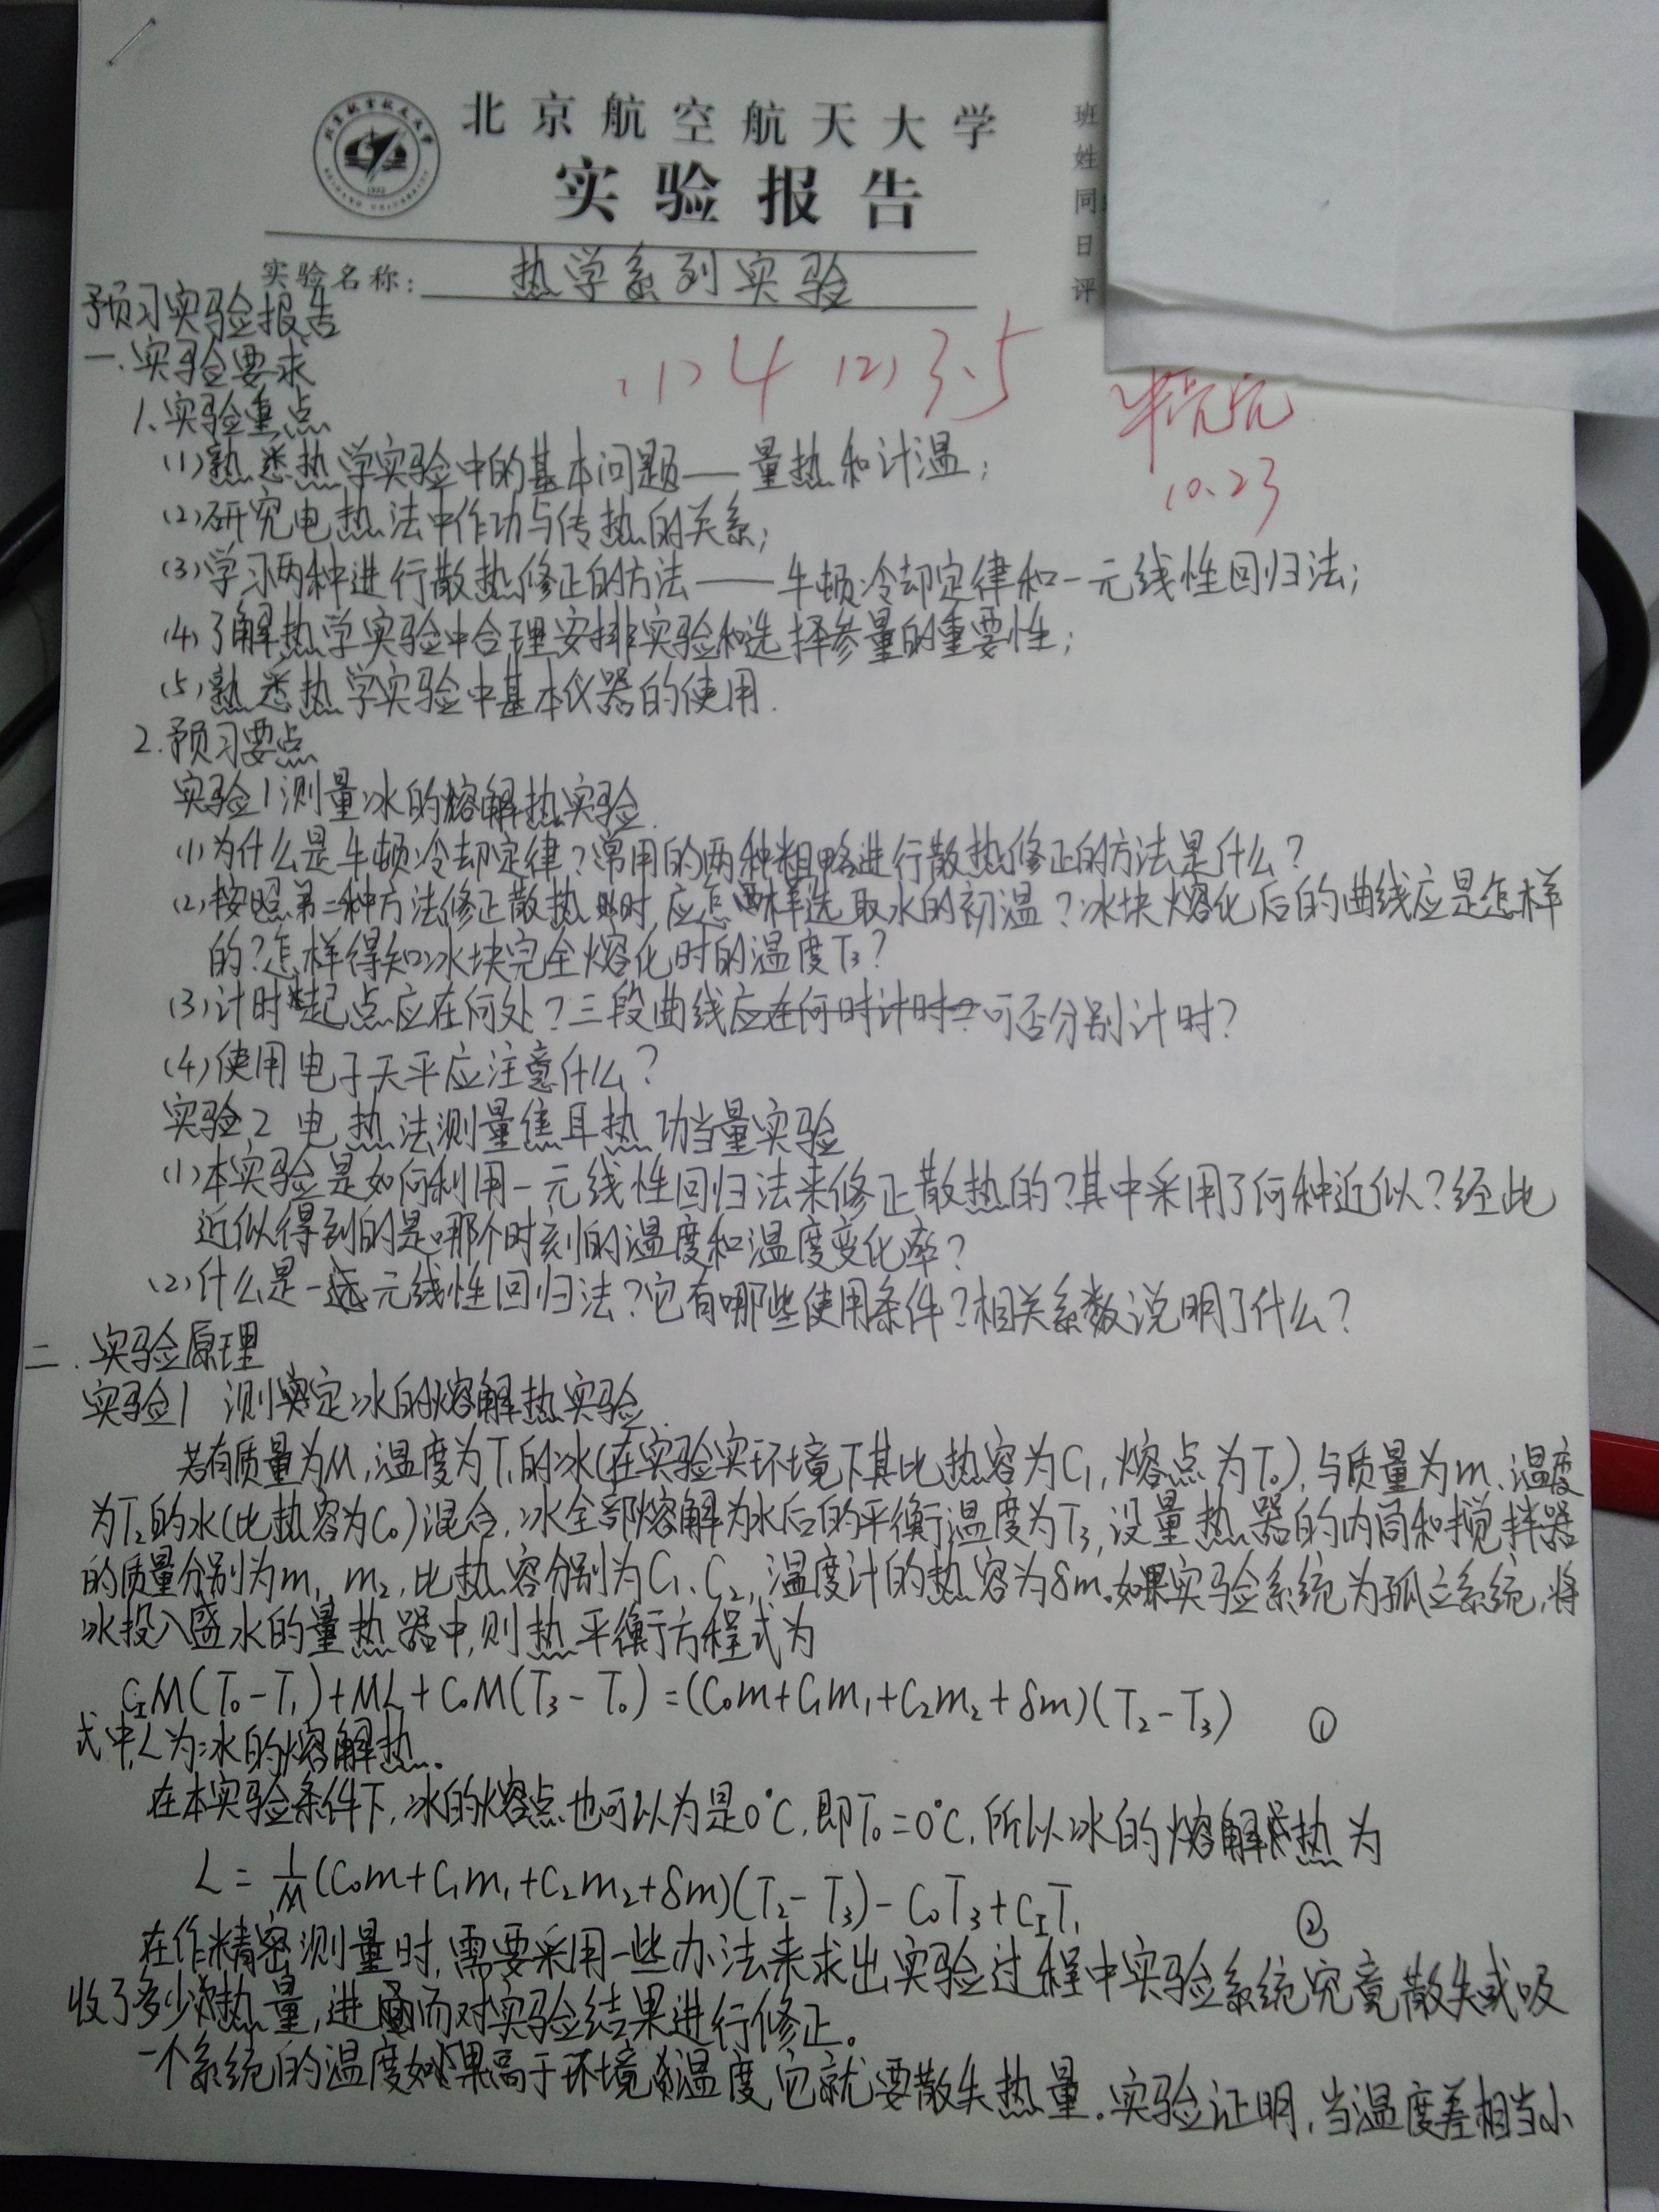 北京航空航天大学
实验报告
班
姓
同
日
评
实验名称: 热学系列实验
预习实验报告
(1) 4 (2) 3.5
10.23
一.实验要求
1.实验重点
(1)熟悉热学实验中的基本问题——量热和计温;
(2)研究电热法中作功与传热的关系;
(3)学习两种进行散热修正的方法——牛顿冷却定律和一元线性回归法;
(4)了解热学实验中合理安排实验和选择参量的重要性;
(5)熟悉热学实验中基本仪器的使用.
2.预习要点
实验1 测量冰的熔解热实验.
(1)为什么是牛顿冷却定律?常用的两种粗略进行散热修正的方法是什么?
(2)按照第二种方法修正散热时,应怎样选取水的初温?冰块熔化后的曲线应是怎样
的?怎样得知冰块完全熔化时的温度T₃?
(3)计时起点应在何处?三段曲线可否分别计时?
(4)使用电子天平应注意什么?
实验2 电热法测量焦耳热功当量实验
(1)本实验是如何利用一元线性回归法来修正散热的?其中采用了何种近似?经此
近似得到的是哪个时刻的温度和温度变化率?
(2)什么是一元线性回归法?它有哪些使用条件?相关系数说明了什么?
二.实验原理
实验1 测定冰的熔解热实验.
若有质量为M,温度为T₁的冰(在实验实环境下其比热容为C₁,熔点为T₀),与质量为m、温度
为T₂的水(比热容为C₀)混合,冰全部熔解为水后的平衡温度为T₃,设量热器的内筒和搅拌器
的质量分别为m₁、m₂,比热容分别为C₁、C₂,温度计的热容为δm。如果实验系统为孤立系统,将
冰投入盛水的量热器中,则热平衡方程式为
C_IM(T₀-T₁)+ML+C₀M(T₃-T₀)=(C₀m+C₁m₁+C₂m₂+δm)(T₂-T₃) ①
式中,L为冰的熔解热.
在本实验条件下,冰的熔点也可以为是0°C,即T₀=0°C,所以冰的熔解热为
L=1/M(C₀m+C₁m₁+C₂m₂+δm)(T₂-T₃)-C₀T₃+C_IT₁ ②
在作精密测量时,需要采用一些办法来求出实验过程中实验系统究竟散失或吸
收了多少热量,进而对实验结果进行修正。
一个系统的温度如果高于环境温度,它就要散失热量。实验证明,当温度差相当小